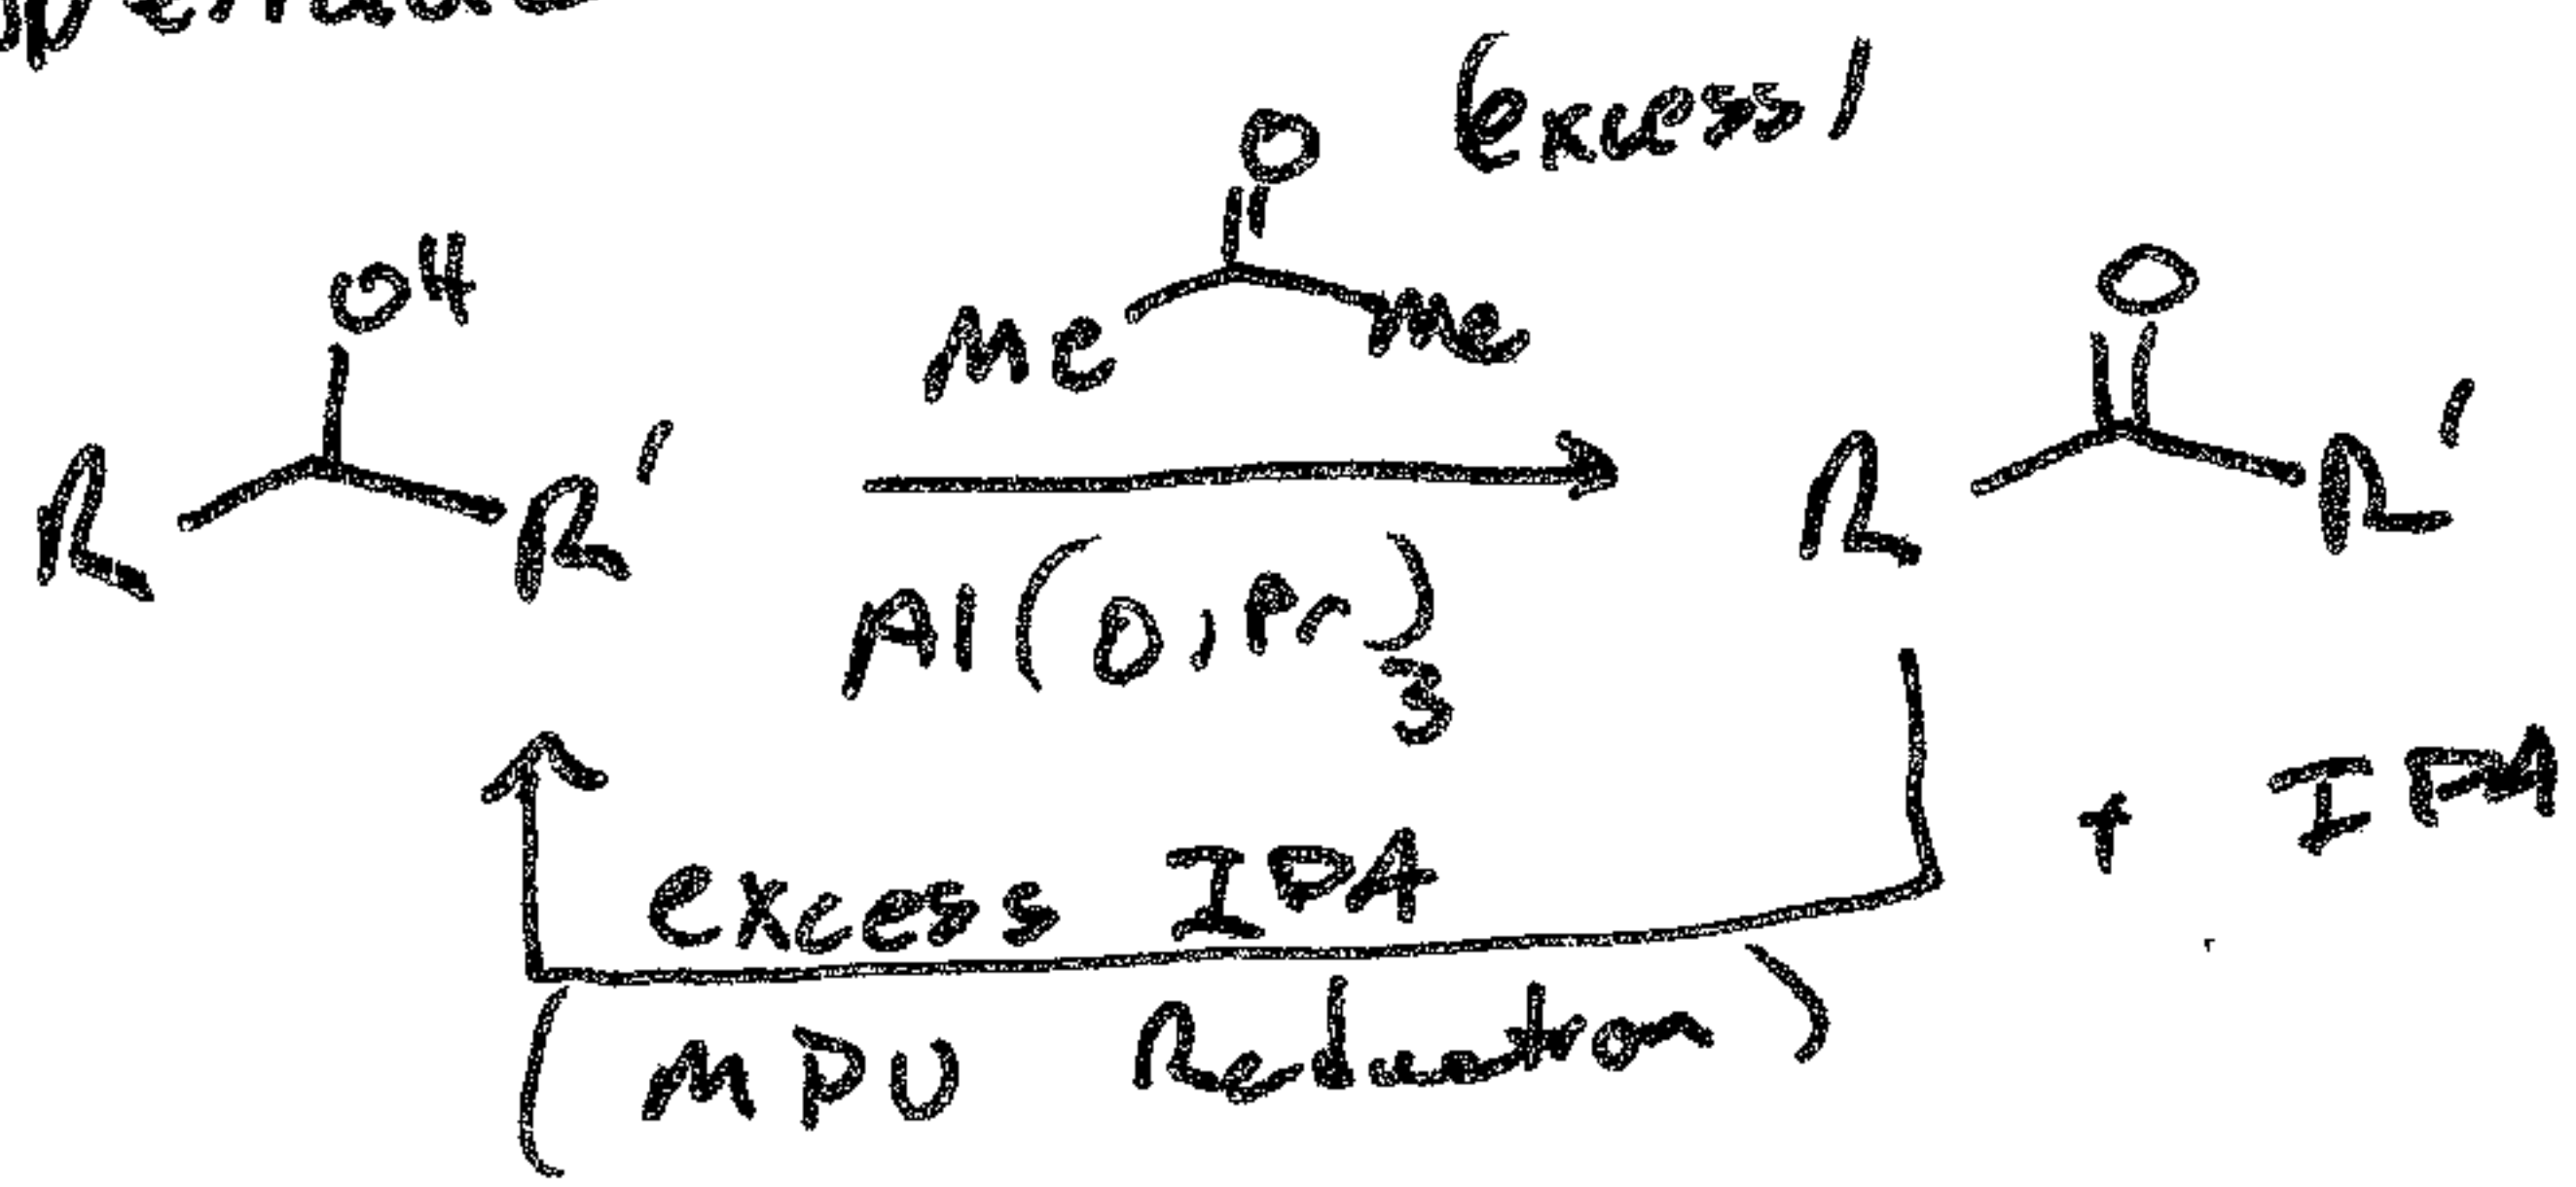 (excess)
O
OH
Me
Me
O
R
R'
R
R'
Al(OiPr)3
+ IPA
excess IPA
(MPV Reduction)